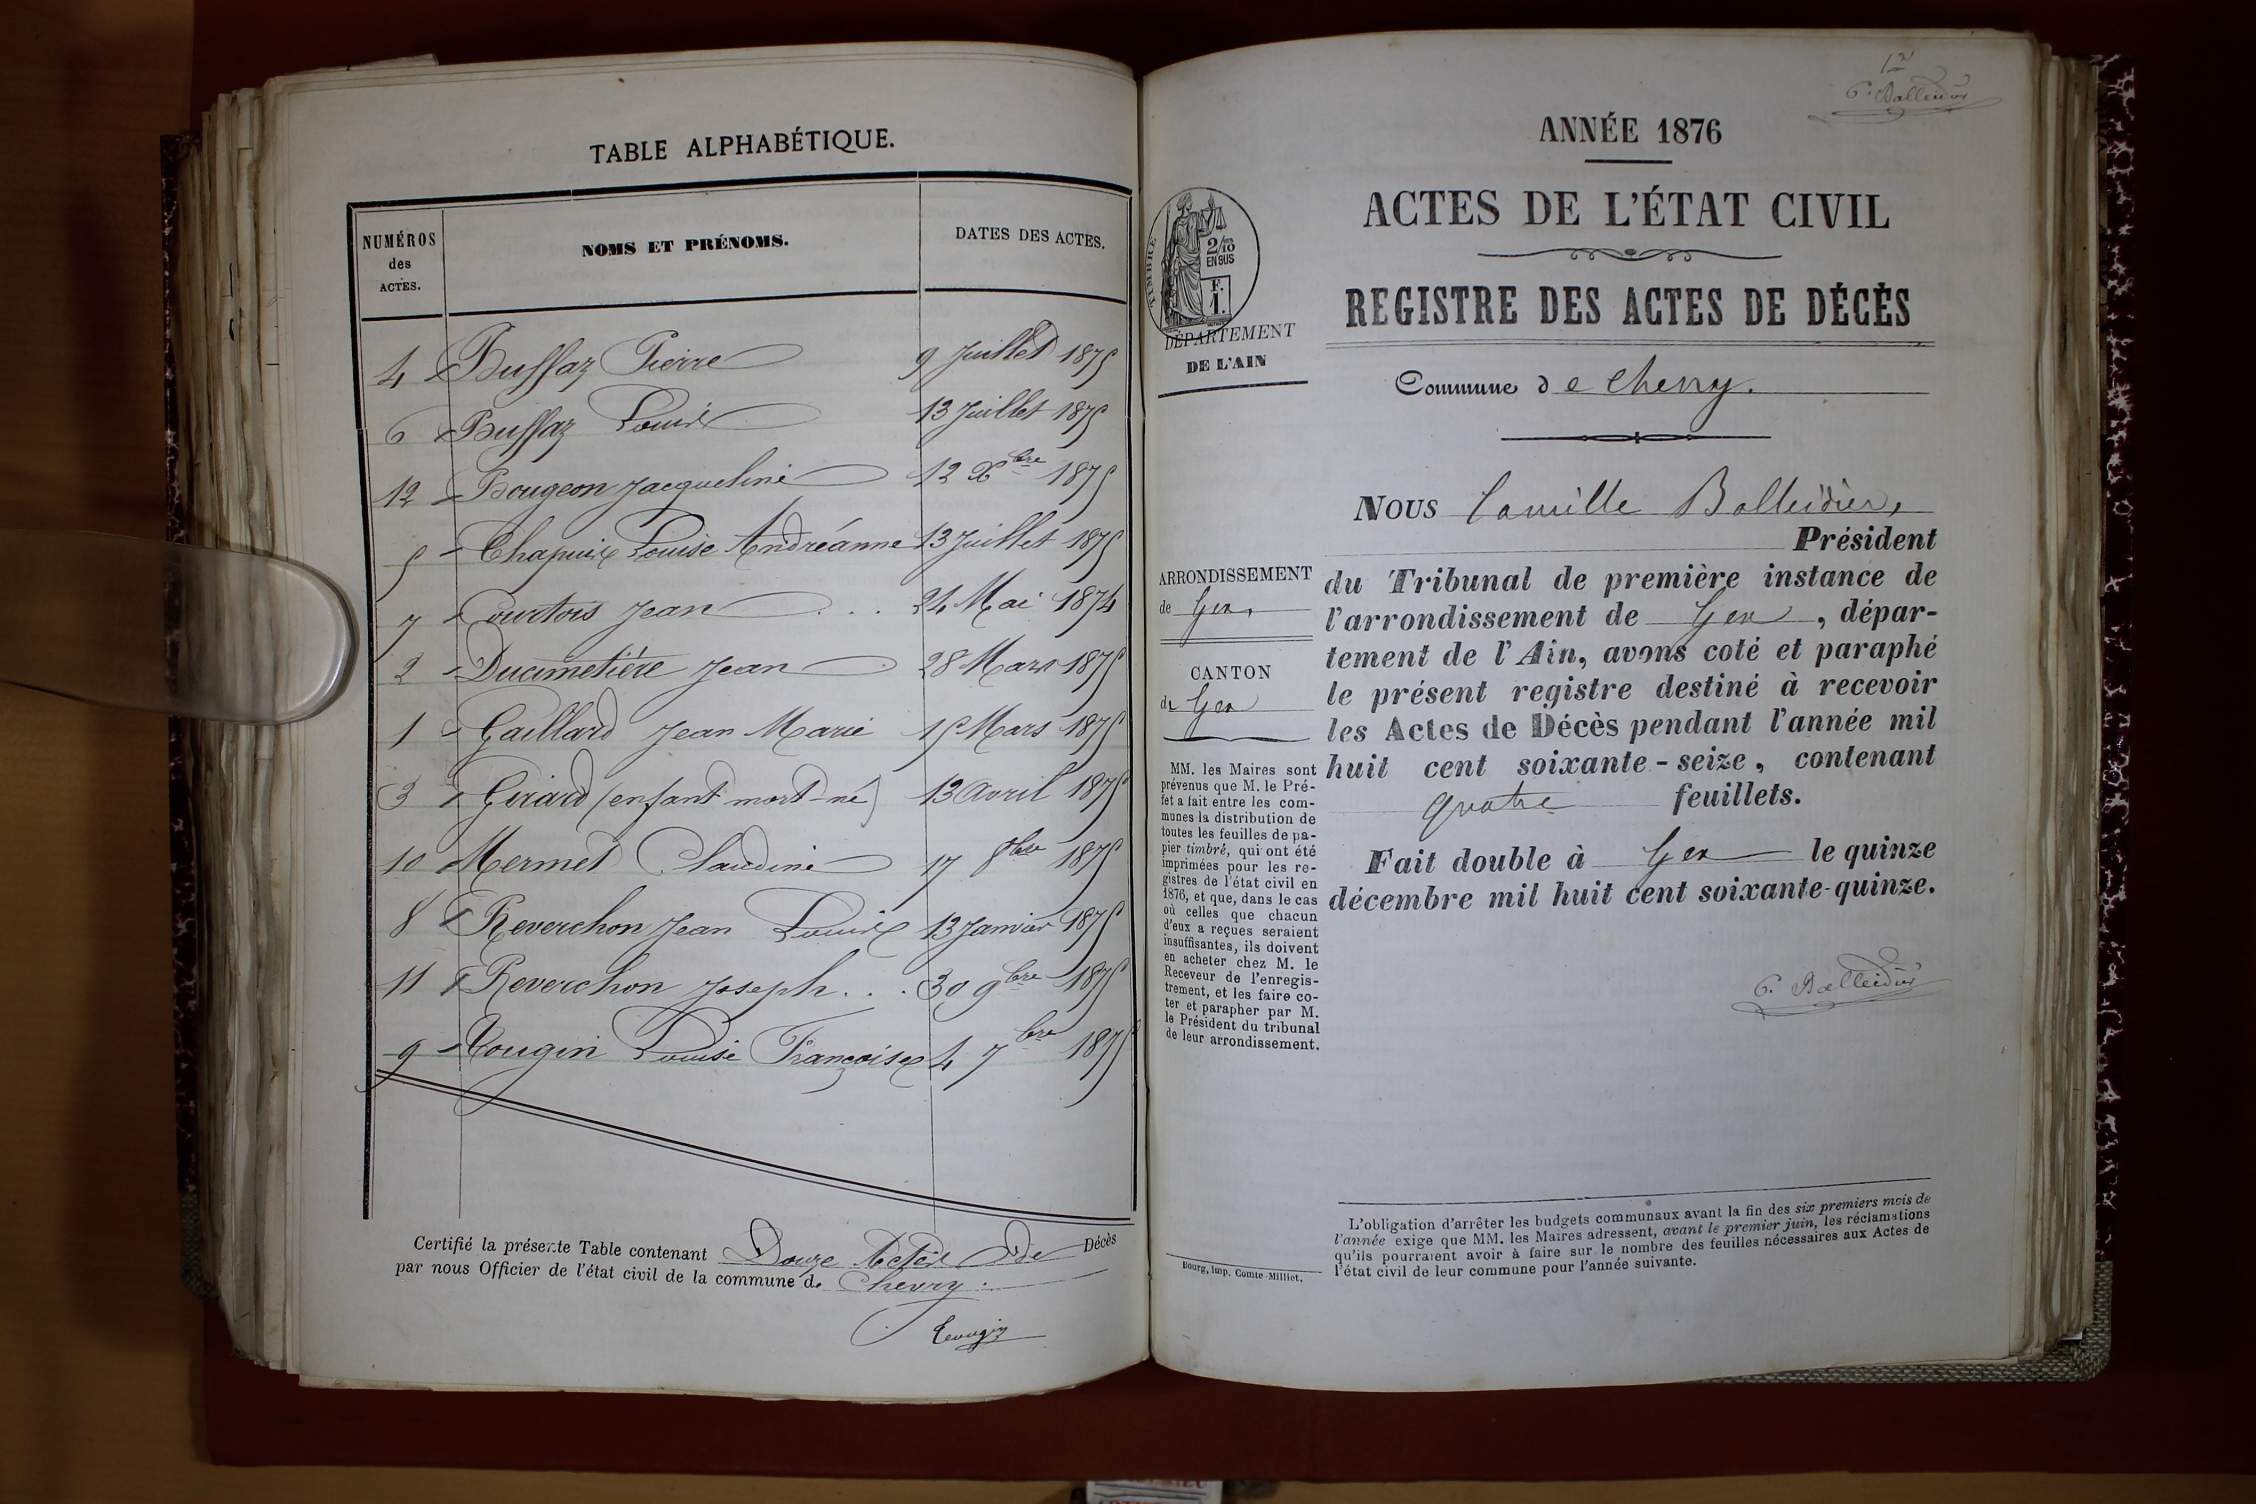 TABLE ALPHABÉTIQUE.
NUMÉROS des ACTES. NOMS ET PRÉNOMS. DATES DES ACTES.
4 Buffaz Pierre 9 Juillet 1875
6 Buffaz Louis 13 Juillet 1875
12 Bougeon Jacqueline 12 Xbre 1875
5 Chapuis Louise Andréanne 13 Juillet 1875
7 Courtois Jean . . . 24 Mai 1874
2 Ducimetière Jean 28 Mars 1875
1 Gaillard Jean Marie 15 Mars 1875
3 Girard (enfant mort-né) 13 Avril 1875
10 Mermet Claudine 17 8bre 1875
8 Reverchon Jean Louis 13 Janvier 1875
11 Reverchon Joseph . . . 30 9bre 1875
9 Tougin Louise Françoise 4 7bre 1875
Certifié la présente Table contenant Douze Actes de Décès
par nous Officier de l'état civil de la commune de Chevry.
Tougin
1er
C. Balleidier
ANNÉE 1876
ACTES DE L'ÉTAT CIVIL
REGISTRE DES ACTES DE DÉCÈS
TIMBRE
2/10
EN SUS
F.
1.
DÉPARTEMENT
DE L'AIN
Commune de Chevry.
NOUS Camille Balleidier,
Président
du Tribunal de première instance de
l'arrondissement de Gex, dépar-
tement de l'Ain, avons coté et paraphé
le présent registre destiné à recevoir
les Actes de Décès pendant l'année mil
huit cent soixante-seize, contenant
quatre feuillets.
Fait double à Gex le quinze
décembre mil huit cent soixante-quinze.
C. Balleidier
ARRONDISSEMENT
de Gex,
CANTON
de Gex
MM. les Maires sont
prévenus que M. le Pré-
fet a fait entre les com-
munes la distribution de
toutes les feuilles de pa-
pier timbré, qui ont été
imprimées pour les re-
gistres de l'état civil en
1876, et que, dans le cas
où celles que chacun
d'eux a reçues seraient
insuffisantes, ils doivent
en acheter chez M. le
Receveur de l'enregis-
trement, et les faire co-
ter et parapher par M.
le Président du tribunal
de leur arrondissement.
Bourg, Imp. Comte-Milliet.
L'obligation d'arrêter les budgets communaux avant la fin des six premiers mois de
l'année exige que MM. les Maires adressent, avant le premier juin, les réclamations
qu'ils pourraient avoir à faire sur le nombre des feuilles nécessaires aux Actes de
l'état civil de leur commune pour l'année suivante.